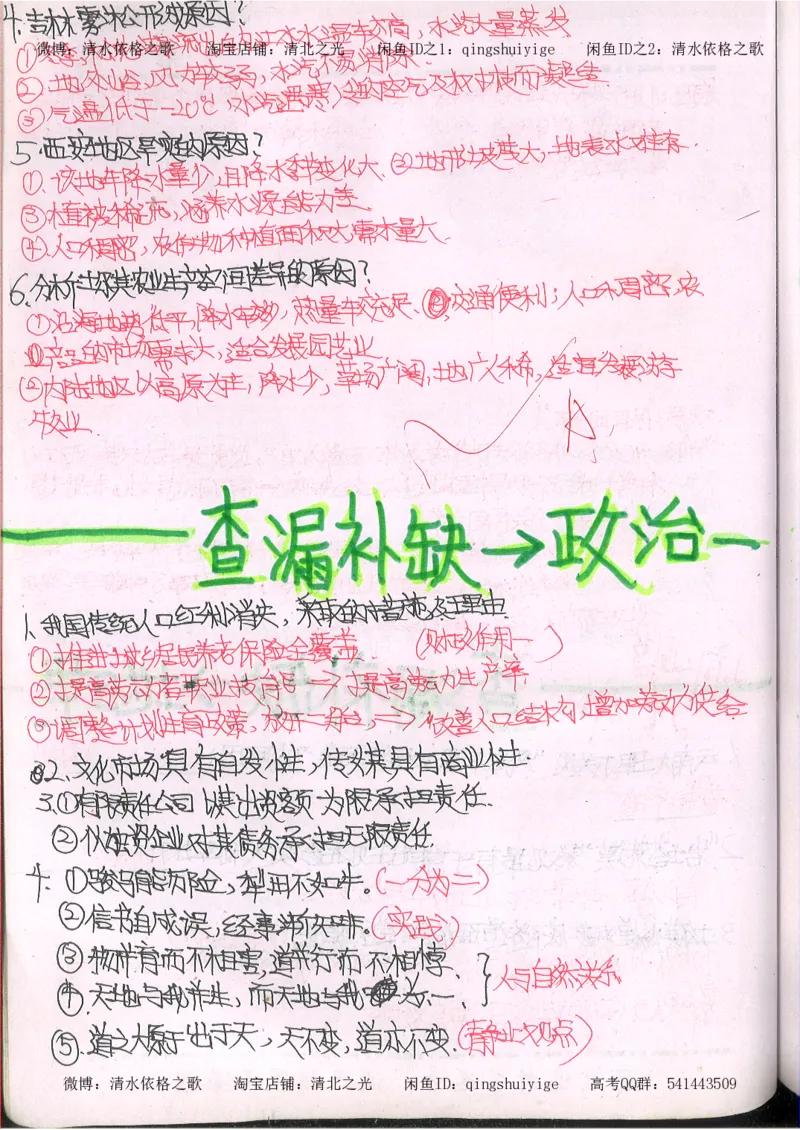 4. 吉林雾凇公形成原因?
微博:清水依格之歌 淘宝店铺:清北之光 闲鱼ID之1:qingshuiyige 闲鱼ID之2:清水依格之歌
水温较高,水汽大量蒸发
② 地处山谷,风力较弱,水汽不易消散.
③ 气温低于-20℃,水汽遇寒冷的空气及树枝而凝结
5. 西安地区旱灾的原因?
①、该地年降水量少,且降水季节变化大. ②地形坡度大,地表水难存.
③植被稀疏,涵养水源能力差.
④.人口稠密,农作物种植面积大,需水量大.
6. 分析 农业生产空间差异的原因?
①沿海地势低平,降水较多,热量较充足、 交通便利;人口稠密,农
产品的市场需求大,适合发展园艺业
②内陆地区以高原为主,降水少,草场广阔,地广人稀,适宜发展游
牧业.
查漏补缺→政治
1、我国传统人口红利消失,采取的措施及理由.
①推进城乡居民养老保险全覆盖. (财政作用一)
②提高劳动者职业技能 → 提高劳动生产率
③调整计划生育政策,放开二胎,→改善人口结构,增加劳动力供给
2、文化市场具有自发性,传媒具有商业性.
3.①有限责任公司以其出资额为限承担责任.
②个人独资企业对其债务承担无限责任.
4. ①骏马能历险,犁田不如牛。(一分为二)
②信书自成误,经事渐知非。(实践)
③万物并育而不相害,道并行而不相悖.
④.天地与我并生,而万物与我为一. } 人与自然关系
⑤.道之大原于出于天,天不变,道亦不变.(静止观点)
微博:清水依格之歌 淘宝店铺:清北之光 闲鱼ID:qingshuiyige 高考QQ群:541443509